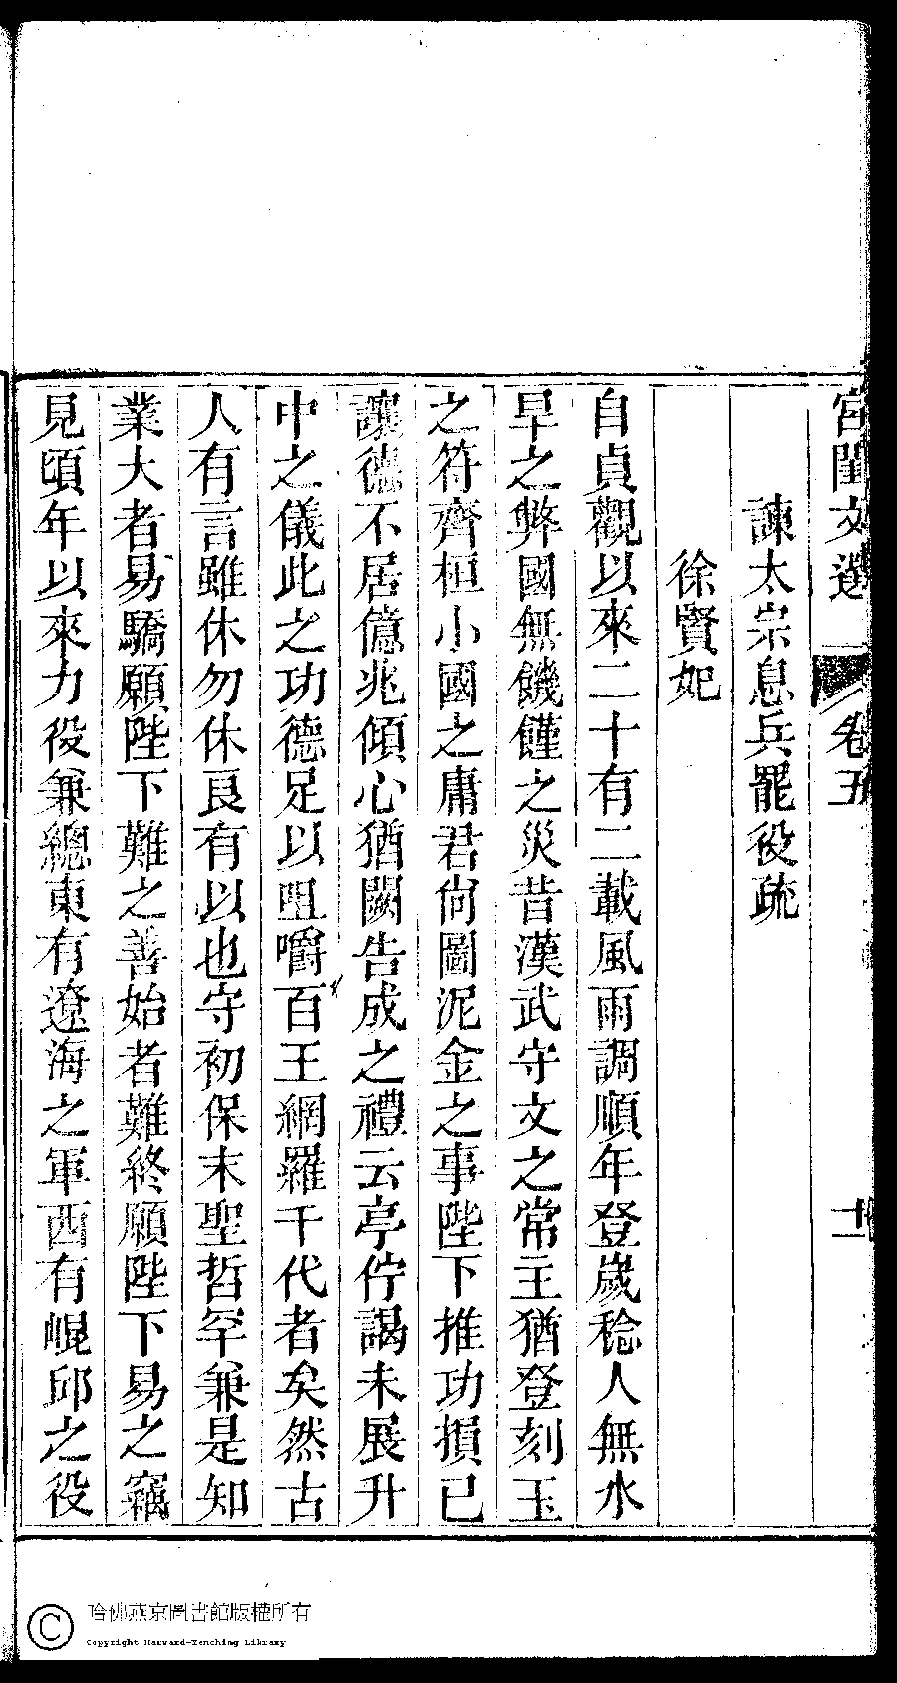 宮閨文選 卷五 十一
諫太宗息兵罷役疏
徐賢妃
自貞觀以來二十有二載風雨調順年登歲稔人無水
旱之弊國無饑饉之災昔漢武守文之常主猶登刻玉
之符齊桓小國之庸君尙圖泥金之事陛下推功損已
讓德不居億兆傾心猶闕告成之禮云亭佇謁未展升
中之儀此之功德足以咀嚼百王網羅千代者矣然古
人有言雖休勿休良有以也守初保末聖哲罕兼是知
業大者易驕願陛下難之善始者難終願陛下易之竊
見頃年以來力役兼總東有遼海之軍西有崐邱之役
哈佛燕京圖書館版權所有
Copyright Harvard-Yenching Library